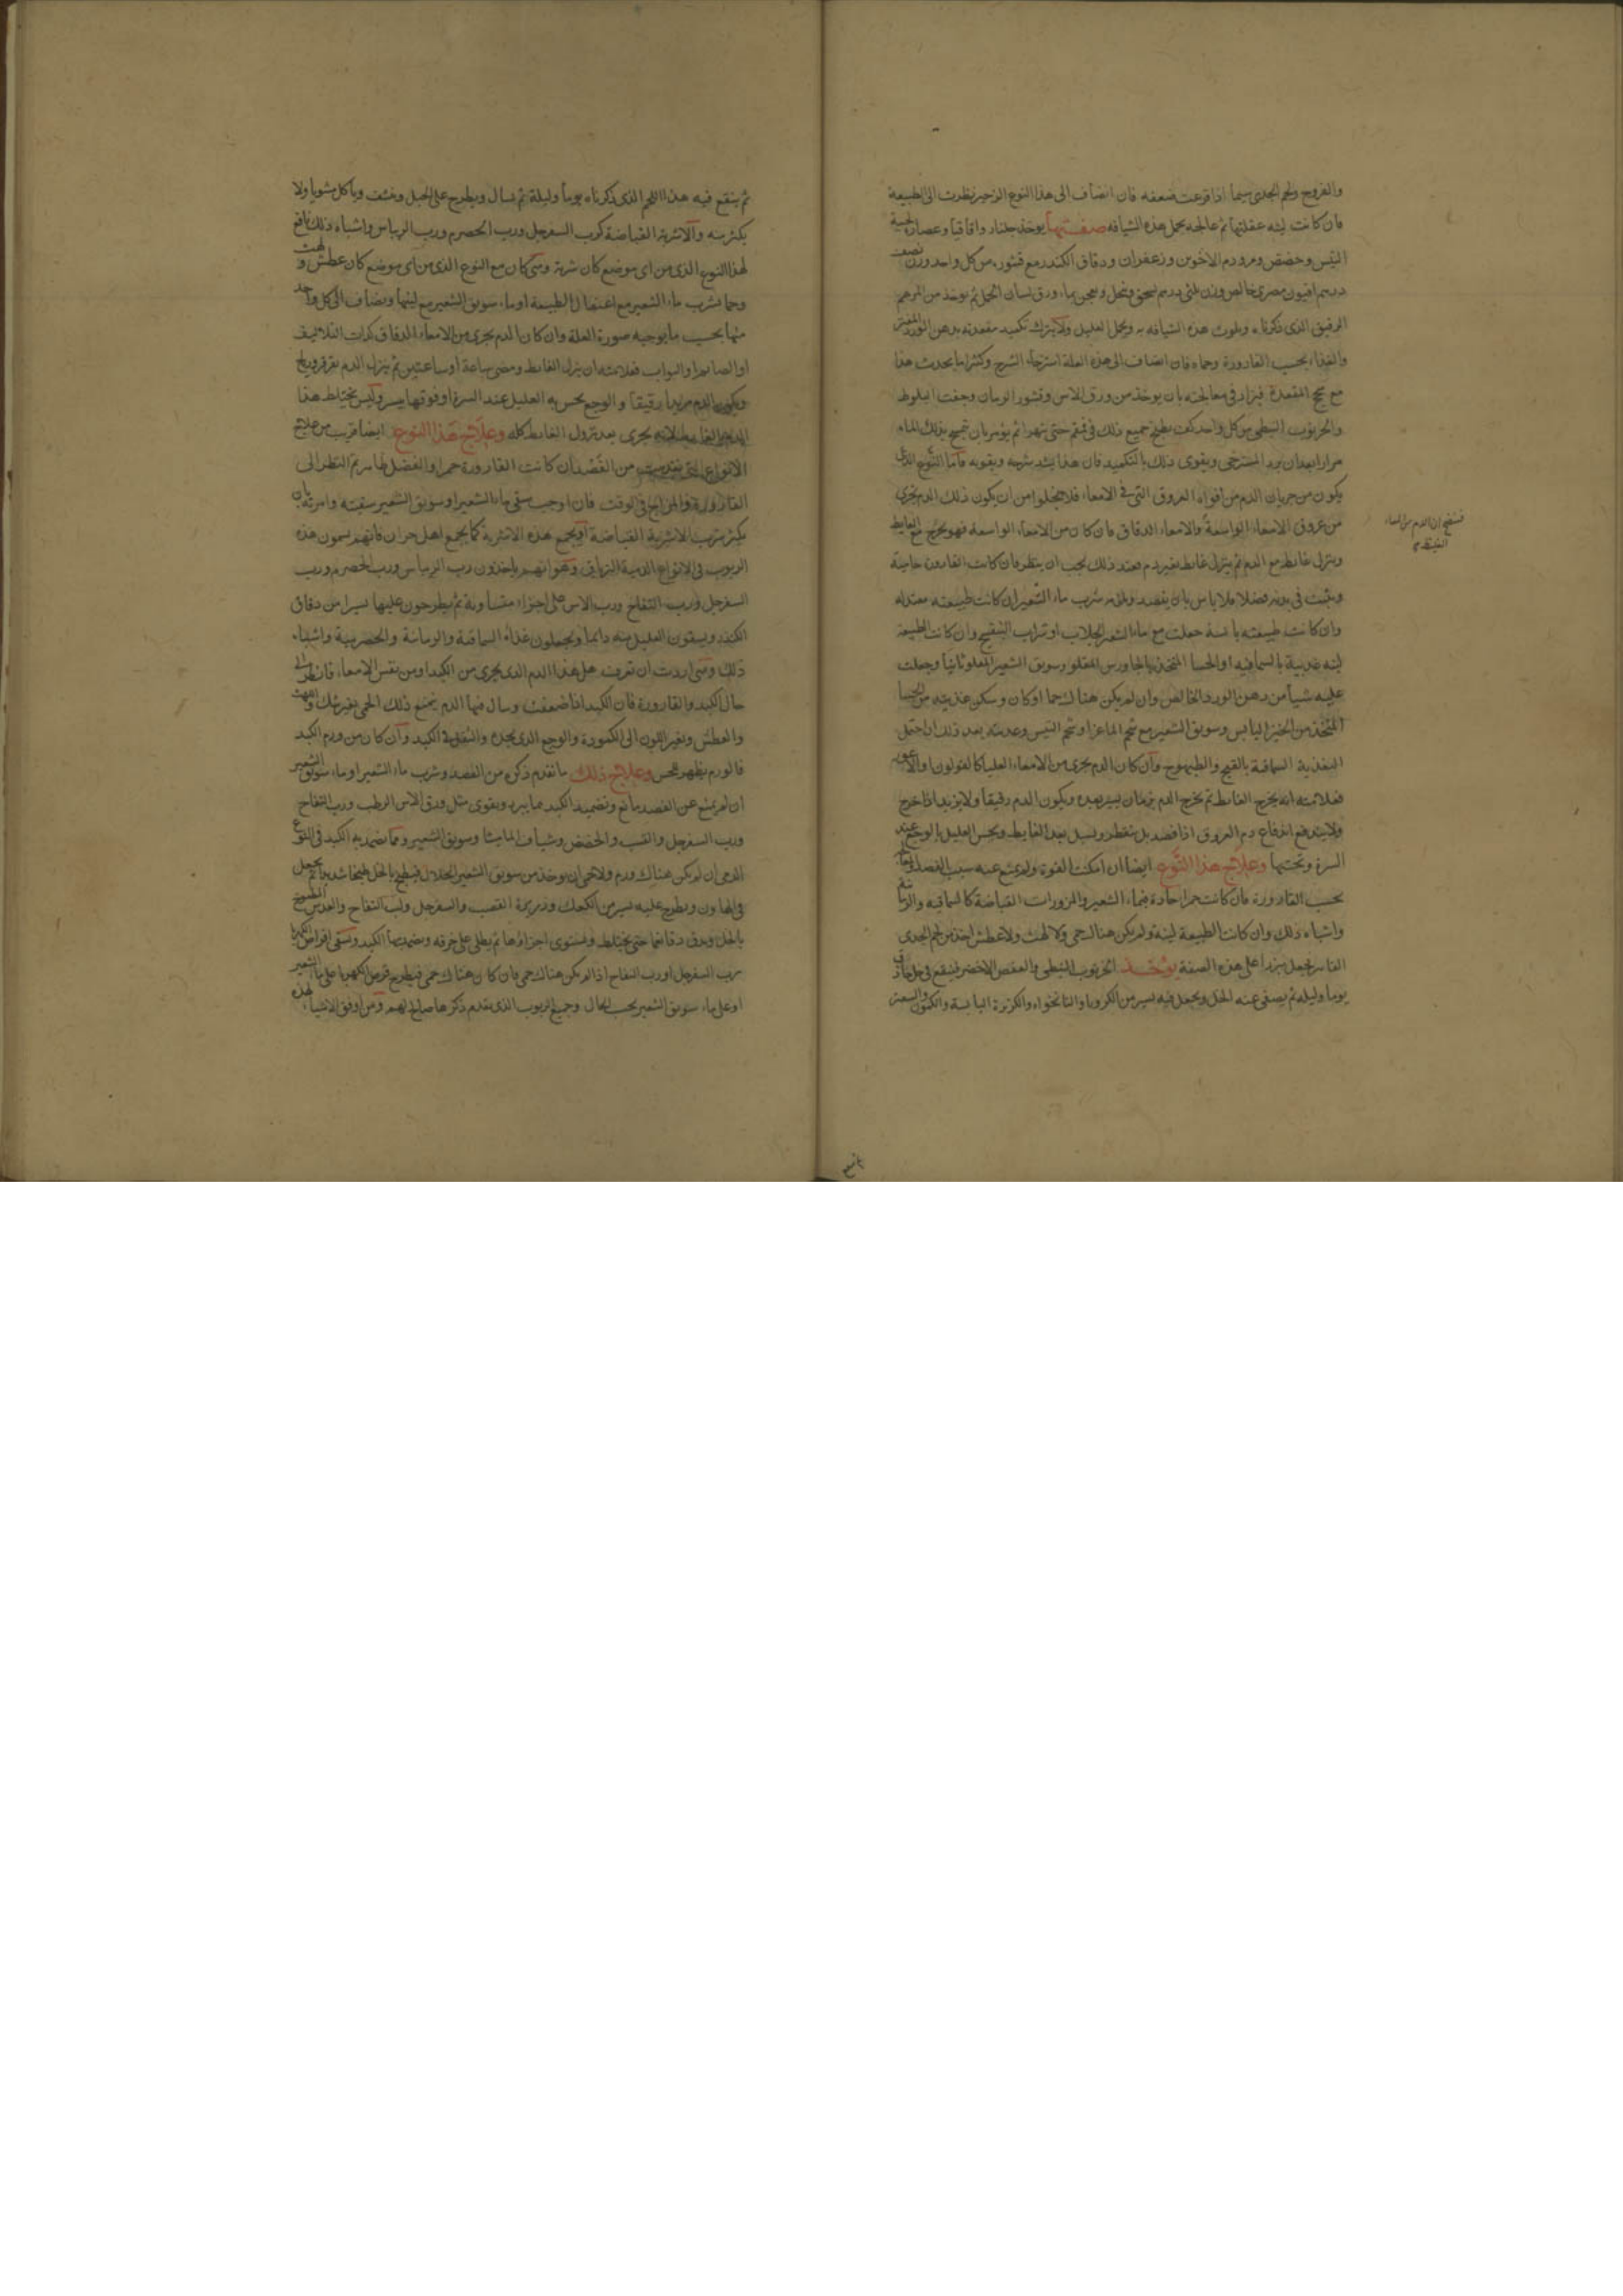 والفروج ولحم الجدي سيما اذا فزعت ضعفه فان انضاف الى هذا النوع الزحير نظرت الى الطبيعة
فان كانت لينه عقلتها ثم عالجه بحمل هذه الشيافه صفتها يوخذ جلنار واقاقيا وعصارة لحية
التيس وحضض ومر ودم الاخوين وزعفران ودقاق الكندر مع قشوره من كل واحد وزن نصف
درهم افيون مصرى خالص وزن ثلثى درهم يسحق وينخل ويعجن بماء ورق لسان الحمل ثم يوخذ من المرهم
الرقيق الذى ذكرناه ويلوث هذه الشيافه به ويحمل العليل ولا يترك تكميد مقعدته بدهن الورد المفتر
والغذاء بحسب القارورة وحماه فان انضاف الى هذه العلة استرخاء الشرج وكثيرا ما يحدث هذا
مع سحج المقعدة فيزاد فى معالجته بان يوخذ من ورق الاس وقشور الرمان وجفت البلوط
والخرنوب النبطى من كل واحد كف يطبخ جميع ذلك فى قمقم حتى يتهرا ثم يؤمر بان يتمسح بذلك الماء
مرارا بعد ان يرد المسترخى ويقوى ذلك بالتكميد فان هذا يشد شرجه ويقويه فاما النوع الذى
يكون من جريان الدم من افواه العروق التى فى الامعاء فلا يخلوا من ان يكون ذلك الدم يجرى
من عروق الامعاء الواسعة والامعاء الدقاق فان كان من الامعاء الواسعة فهو يخرج مع الغايط
وينزل غائط مع الدم ثم ينزل غائط بغير دم فعند ذلك يجب ان ينظر فان كانت القارورة حامية
وتبينت فى بدنه فضلا فلا باس بان يفصد ويلزمه شرب ماء الشعير ان كانت طبيعته معتدله
وان كانت طبيعته يابسة جعلت مع ماء الشعير الجلاب او شراب البنفسج وان كانت الطبيعة
لينه غذيته بالسماقيه او الحسا المتخذ بالجاورس المقلو وسويق الشعير المغلو ثانيا وجعلت
عليه شيأ من دهن الورد الخالص وان لم يكن هناك حما او كان وسكن غذيته من الحسا
المتخذ من الخبز اليابس وسويق الشعير مع شحم الماعز او شحم التيس وغذيته بعد ذلك ان احتمل
التغذية السماقية بالقبج والطيهوج وان كان الدم يجرى من الامعاء العليا كالقولون والاعور
فعلامته انه يخرج الغائط ثم يخرج الدم بزمان يسير بعده ويكون الدم رقيقا ولا يزبد اذا خرج
ولا يندفع اندفاع دم العروق اذا فصد بل يتقطر ويسيل بعد الغايط ويحس العليل بالوجع عند
السرة وتحتها وعلاج هذا النوع ايضا ان امكنت القوة ولم يمنع عنه سبب الفصد
بحسب القارورة فان كانت حمرا حادة فماء الشعير والمزورات القباضة كالسماقيه والرمانية
واشباه ذلك وان كانت الطبيعة لينة ولم يكن هناك حمى ولا لهث ولا عطش اخذ من لحم الجدى
يؤخذ الخرنوب النبطى والعفص الاخضر فينقع فى خل حاذق
يوما وليله ثم يصفى عنه الخل ويجعل فيه يسير من الكرويا والنانخواه والكزبرة اليابسة والكمون والسعتر
ثم ينقع فيه هذا اللحم الذى ذكرناه يوما وليلة ثم يسال ويطرح على الحبل وخفف وياكل مشويا ولا
يكثر منه والاشربة القباضة كرب السفرجل ورب الحصرم ورب الريباس واشباه ذلك نافع
لهذا النوع الذى من اى موضع كان شربة ومتى كان مع النوع الذى من اى موضع كان عطش ولهث
وحما يشرب ماء الشعير مع اعتقال الطبيعة او ماء سويق الشعير مع لينها ويضاف الى كل واحد
منها بحسب ما يوجبه صورة العلة وان كان الدم يجرى من الامعاء الدقاق ذوات التلافيف
او الصائم او البواب فعلامته ان ينزل الغائط ومضى ساعة او ساعتين ثم ينزل الدم بقرقر وريح
ويكون الدم مزبدا رقيقا والوجع يحس به العليل عند السرة او فوقها بيسير وليس يختلط هذا
الدم بالغايط لانه يجرى بعد نزول الغايط كله وعلاج هذا النوع ايضا قريب من علاج
الانواع التى تقدمت من الفصد ان كانت القارورة حمرا والفضل ظاهر ثم النظر الى
القارورة والمزاج فى الوقت فان اوجب سقى ماء الشعير او سويق الشعير سقيته وامرته بان
يكثر شرب الاشربة القباضة او يجمع هذه الاشربة كما يجمع اهل حران فانهم يسمون هذه
الربوب فى الانواع الدمية الترياق وهو انهم ياخذون رب الريباس ورب الحصرم ورب
السفرجل ورب التفاح ورب الاس على اجزاء متساوية ثم يطرحون عليها يسيرا من دقاق
الكندر ويسقون العليل منه دائما ويجعلون غذاه السماقية والرمانية والحصرمية واشباه
ذلك ومتى اردت ان تعرف هل هذا الدم الذى يجرى من الكبد او من نفس الامعاء فانظر الى
حال الكبد والقارورة فان الكبد اذا ضعفت وسال منها الدم يتبع ذلك الحمى بغير شك واللهث
والعطش وتغير اللون الى الكمودة والوجع الذى يجده والثقل فى الكبد وان كان من ورم الكبد
فالورم يظهر للحس وعلاج ذلك ما تقدم ذكره من الفصد وشرب ماء الشعير او ماء سويق الشعير
ان لم يمنع عن الفصد مانع وتضميد الكبد مما يبرد ويقوى مثل ورق الاس الرطب ورب التفاح
ورب السفرجل والقسب والحضض وشياف الماميثا وسويق الشعير ومما تضمد به الكبد فى النوع
الدمى ان لم يكن هناك ورم ولا حمى ان يوخذ من سويق الشعير فيطبخ بالخل طبخا شديدا ثم يجعل
فى الهاون ويطرح عليه يسير من الكعك وذريرة القصب والسفرجل ولب التفاح والعدس المطبوخ
بالخل ويدق دقا ناعما حتى يختلط ويستوى اجزاؤها ثم يطلى على خرقه ويضمد بها الكبد ويسقى اقراص الكهربا
برب السفرجل او رب التفاح اذا لم يكن هناك حمى فان كان هناك حمى فيطرح قرص الكهربا على ماء الشعير
او على ماء سويق الشعير بحسب الحال وجميع الربوب الذى تقدم ذكرها صالح لهم ومن اوفق الاشياء لهذه